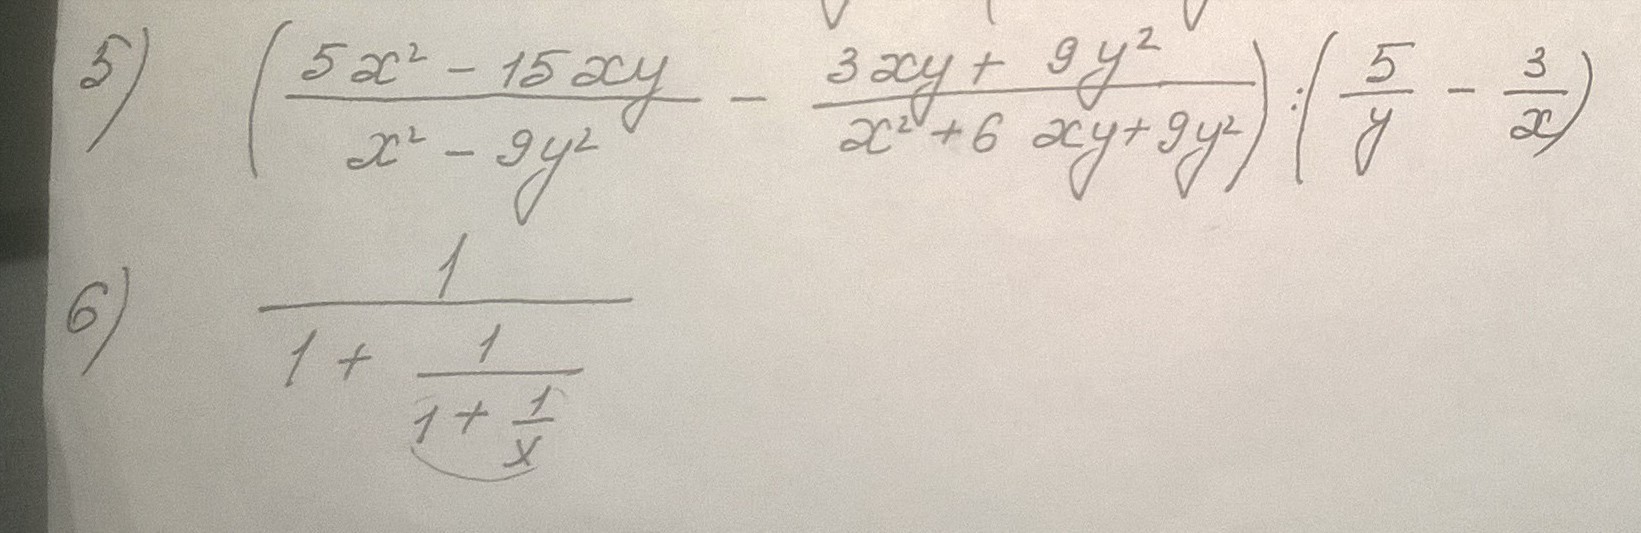 5) ( \frac{5x² - 15xy}{x² - 9y²} - \frac{3xy + 9y²}{x² + 6xy + 9y²} ) : ( \frac{5}{y} - \frac{3}{x} )
6) \frac{1}{1 + \frac{1}{1 + \frac{1}{x}}}